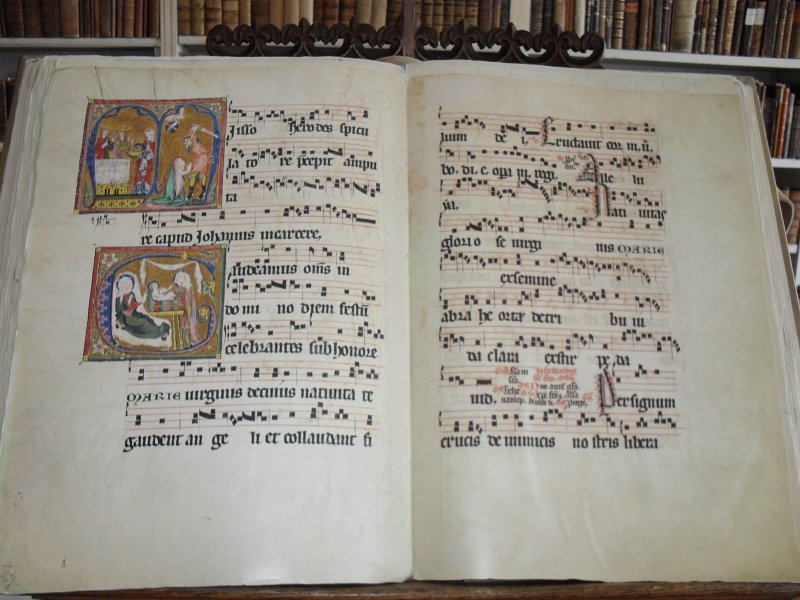 isso herodes spicu
la to re precepit ampu
ta
re capud Johannis in carcere,
audeamus om̄s in
do mi no diem festū
celebrantes sub honore
MARIE virginis de cuius nativita te
gaudent an ge li et collaudant fi
lium de i, Eructavit cor m. ū.
bo. di. e. opa m. regi. Alle lu
ya. Nativitas
glorio se virgi nis MARIE
ex semine
abra he orta de tri bu iu
da clara ex stir pe da
vid, Per signum
crucis de inimicis no stris libera